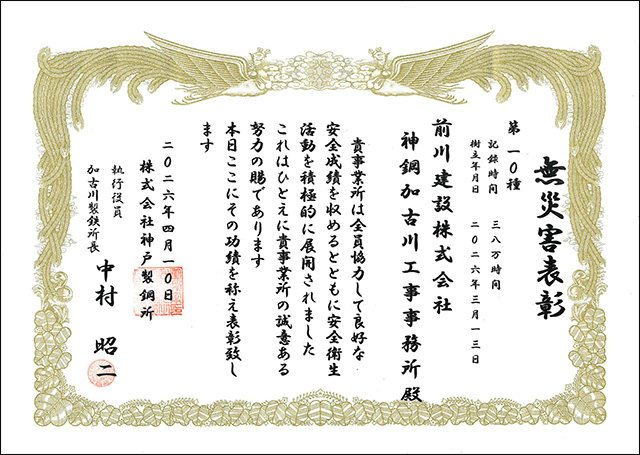 無災害表彰
第一〇種
記録時間 三八万時間
樹立年月日 二〇二六年三月一三日
前川建設株式会社
神鋼加古川工事事務所 殿
貴事業所は全員協力して良好な
安全成績を収めるとともに安全衛生
活動を積極的に展開されました
これはひとえに貴事業所の誠意ある
努力の賜であります
本日ここにその功績を称え表彰致し
ます
二〇二六年四月一〇日
株式会社神戸製鋼所
執行役員
加古川製鉄所長
中村 昭二